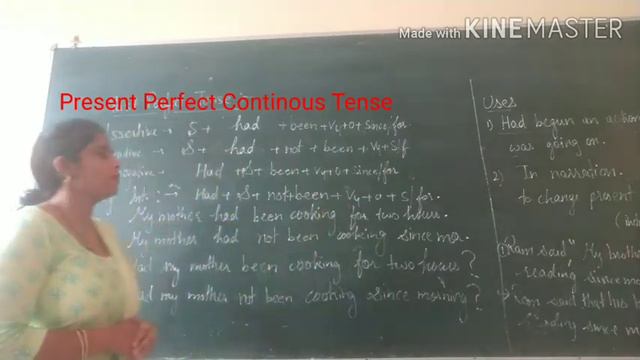 Made with KINEMASTER
Present Perfect Continous Tense
S + had + been + V4 + o + since/for
S + had + not + been + V4 + S/f
Had + S + been + V4 + o + since/for
Had + S + not + been + V4 + o + s/for.
My mother had been cooking for two hours.
My mother had not been cooking since mor.
Had my mother been cooking for two hours?
Had my mother not been cooking since morning?
Uses
1) Had begun an action
was going on.
2) In narration
to change present
Ram said "My brothe
reading since mo
Ram said that his
reading since mo